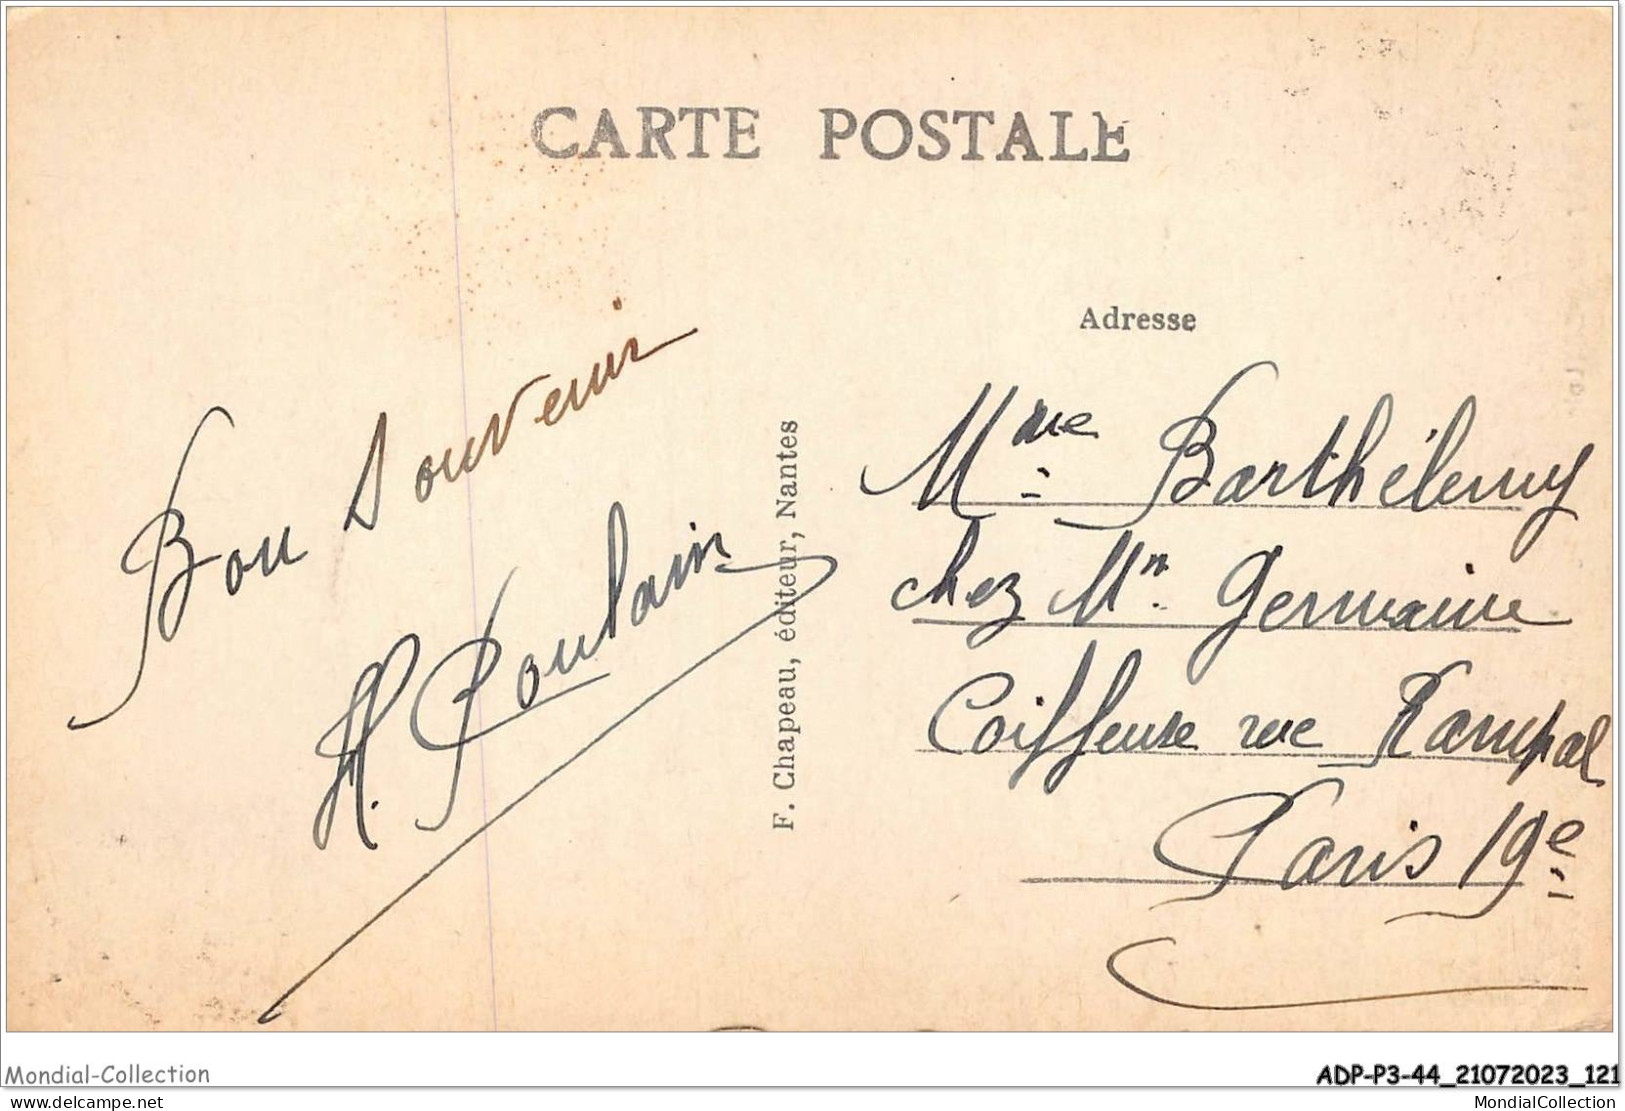 CARTE POSTALE
Bon Souvenir
H. Poulain
F. Chapeau, éditeur, Nantes
Adresse
Mme Barthélemy
chez Mn. Germaine
Coiffeuse rue Rampal
Paris 19e
Mondial-Collection
ADP-P3-44_21072023_121
www.delcampe.net
MondialCollection